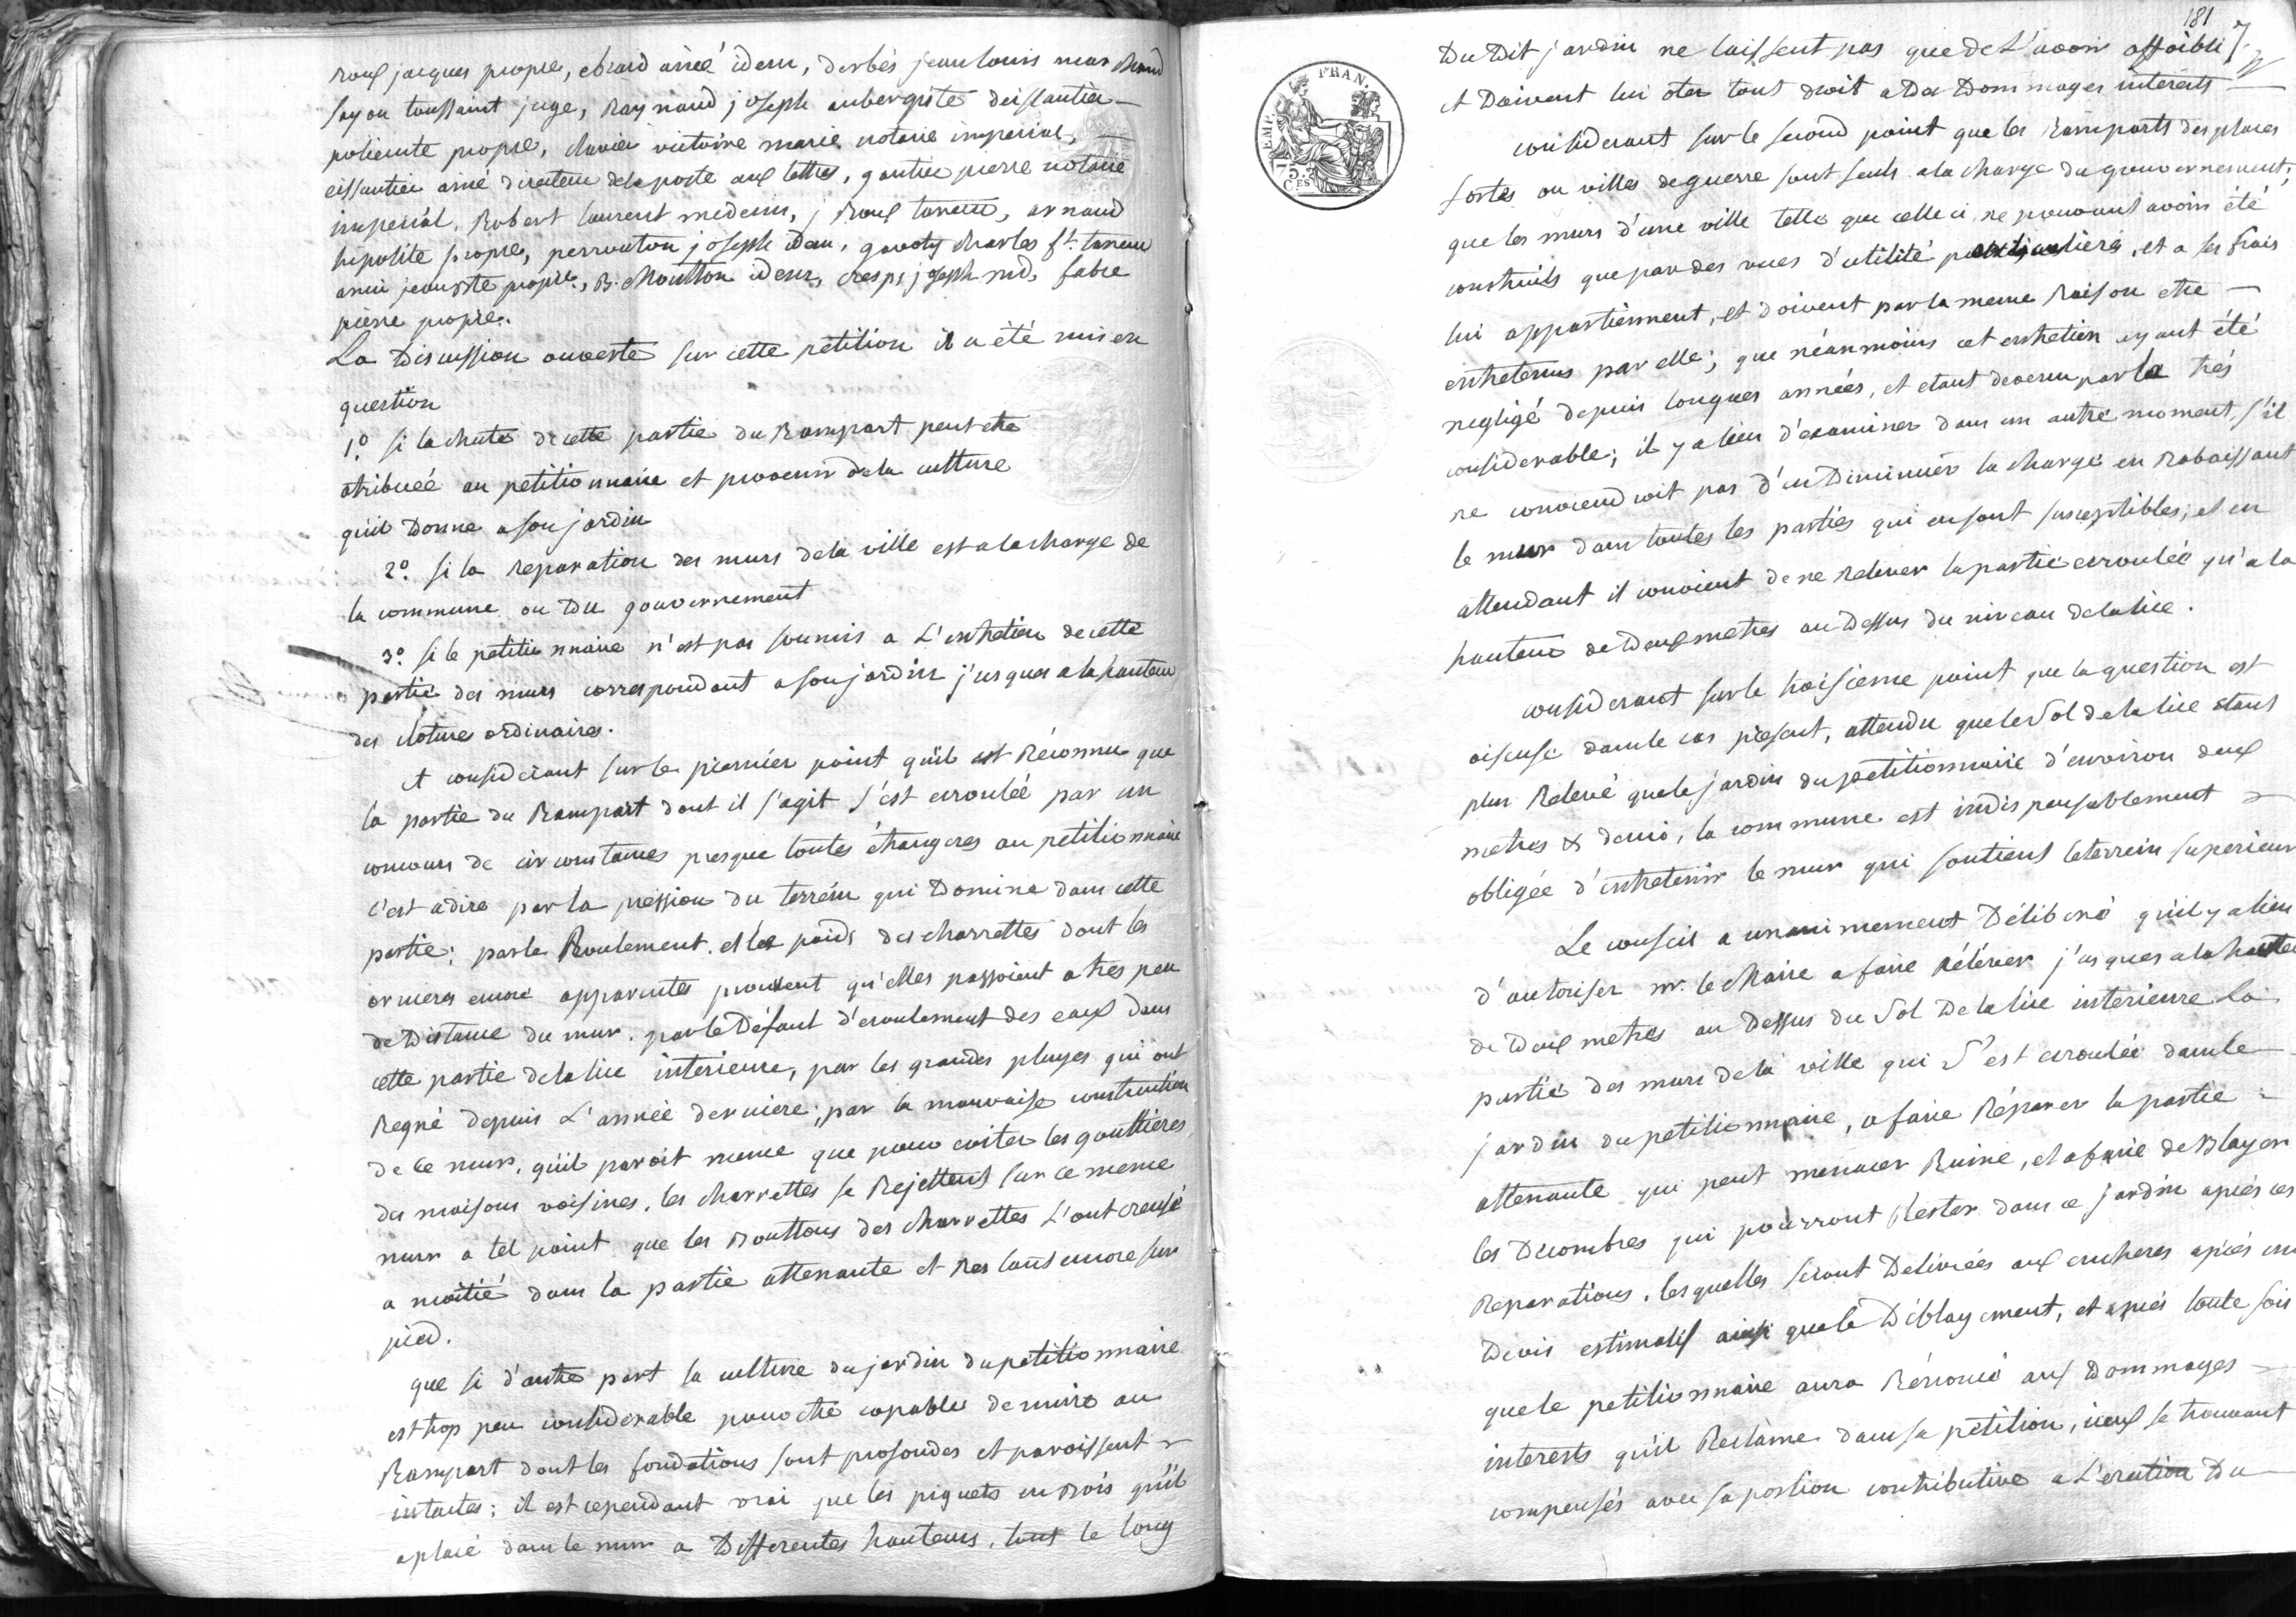 Roux jacques propre, ebrard ainé idem, derbés jean louis marchand
sayou toussaint juge, Raynaud joseph aubergiste deissautier
policinte propre, clavier victoire marie notaire imperial,
eissautier ainé directeur dela poste aux lettres, gautier pierre notaire
imperial, Robert laurent medecin, j Roux taneur, arnaud
hipolite propre, perrouton joseph idem, gavoty charles ft. taneur
amic jean bte propre., B. Moutton idem, cresps joseph nd, fabre
pierre propre.
La Discussion ouverte sur cette pétition il a été mis en
question
1º. si la chute de cette partie du Rampart peut etre
atribueé au petitionnaire et provenir dela culture
qu'il Donne a son jardin
2º. si la reparation des murs dela ville est a la charge de
la commune ou Du gouvernement
3º. si le petitionnaire n'est pas soumis a L'entretien de cette
partie des murs correspondant a son jardin j'usques a la hauteur
des clotures ordinaires.
et considerant sur le piemiér point qu'il est Réconnu que
la partie du Rampart dont il s'agit s'est ecroulée par un
concours de circonstances presque toutes étrangeres au petitionnaire
c'est adire par la pression du terrein qui Domine dans cette
partie; par le Roulement et les poids des charrettes dont les
ornieres encore apparentes prouvent qu'elles passoient a tres peu
de Distance du mur. par le Défaut d'ecoulement des eaux dans
cette partie dela lice intérieure, par les grandes pluyes qui ont
Regné depuis L'année derniere; par la mauvaise construction
de ce mur, qu'il paroit meme que pour eviter les gouttières
des maisons voisines, les charrettes se Rejettent sur ce meme
mur a tel point que les Bouttons des charrettes L'ont creusé
a moitié dans la partie attenante et Restant encore sur
pied.
que si d'autre part la culture du jardin du petitionnaire
est trop peu considerable pour etre capable de nuire au
Rampart dont les fondations sont profondes et paroissent
intactes; il est cependant vrai que les piquets en Bois qu'il
a placé dans le mur a Differentes hauteurs, tout le long
181
Du Dit jardin ne laissent pas que de L'avoir affoibli
et Doivent lui oter tout droit a Des Dommages interéts
considerant sur le second point que les Ramparts des places
fortes ou villes de guerre sont seuls a la charge du gouvernement;
que les murs d'une ville telle que celle ci ne pouvant avoir été
construits que par des vues d'utilité particuliere, et a ses frais
lui appartiennent, et doivent par la meme Raison etre
entretenus par elle; que néanmoins cet entretien ayant été
negligé depuis longues années, et etant devenu par la trés
considerable; il y a lieu d'examiner dans un autre moment, s'il
ne conviendroit pas d'en Diminuer la charge en Rabaissant
le mur dans toutes les parties qui en sont susceptibles; et en
attendant il convient de ne Relever la partie ecroulée qu'a la
hauteur de Deux metres au Dessus du niveau dela lice.
considerant sur le troisieme point que la question est
oiseuse dans le cas présent, attendu que le sol dela lice étant
plus Relevé que le jardin du petitionnaire d'environ deux
metres & demi, la commune est indispensablement
obligée d'entretenir le mur qui soutient le terrein supérieur
Le conseil a unanimement Déliberé qu'il y a lieu
d'autoriser mr. le Maire a faire rélever j'usques a la hauteur
de Deux metres au Dessus du Sol De la lice interieure la
partie des murs dela ville qui S'est ecroulée dans le
jardin du petitionnaire, a faire Réparer la partie
attenante qui peut menacer Ruine, et a faire deblayer
les Decombres qui pourront Rester dans ce jardin apiés ces
Reparations, les quelles seront Delivrées aux encheres apiés un
Devis estimatif ainsi que le Déblayement, et apiés toute fois
que le petitionnaire aura Rénoncé aux Dommages
interests qu'il Reclame dans sa pétition, iceux se trouvant
compensés avec sa portion contributive a L'eration Du
EMP. FRAN.
75
C.ES